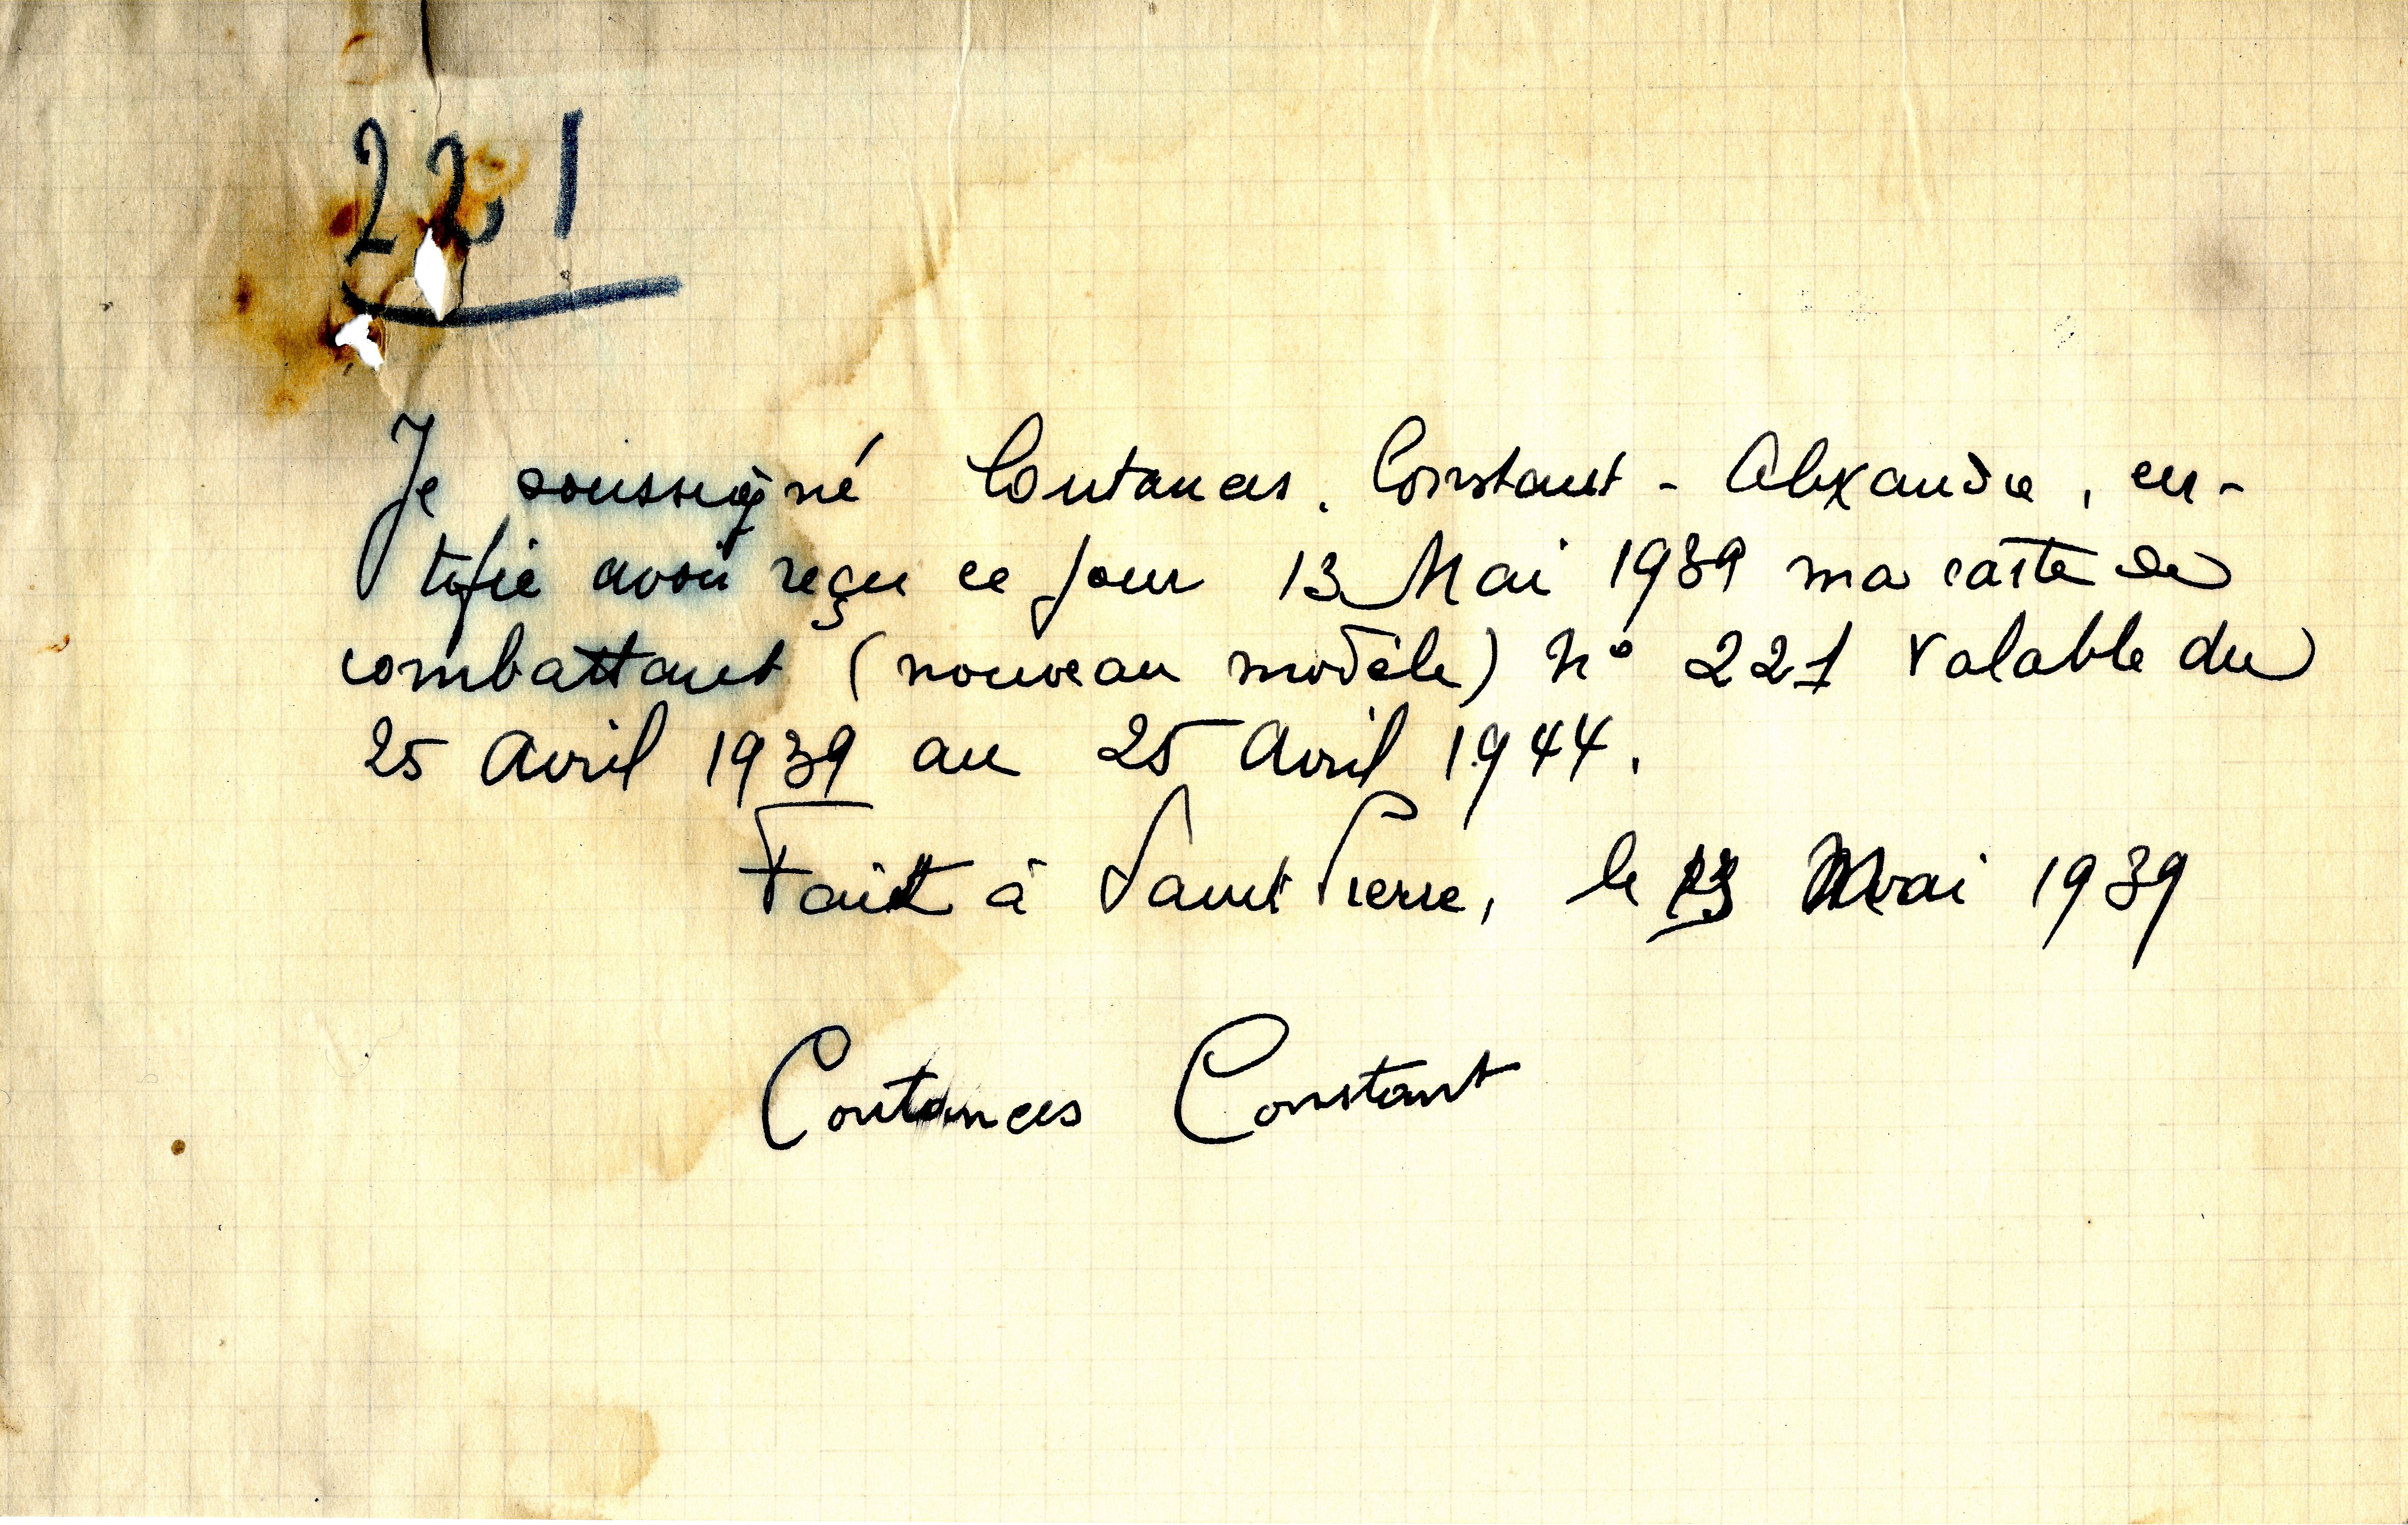 221
Je soussigné Coutances. Constant - Alexandre, cer-
tifie avoir reçu ce jour 13 Mai 1939 ma carte de
combattant (nouveau modèle) N° 221 valable du
25 Avril 1939 au 25 Avril 1944.
Fait à Saint Pierre, le 13 Mai 1939
Coutances Constant